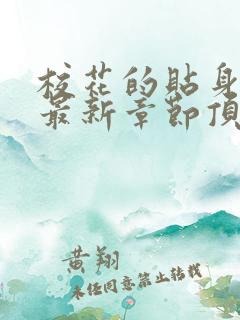 校花的贴身
最新章节顶
黄翔
未经同意禁止转载